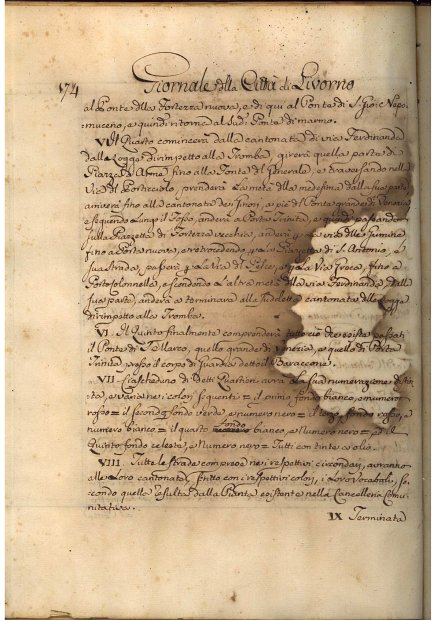 174 Giornale della Città di Livorno
al Ponte della Fortezza nuova, e di qui al Ponte di S. Gio: e Nepo
muceno, e quindi ritorna al sud.º Ponte di marmo.
V. Il Quarto comincerà dalla cantonata di via Ferdinanda
dalle Logge dirimpetto alla Tromba, girerà quella parte di
Piazza d'Arme fino alla Fonte del Generale, e traversando nella
Via del Porticciolo, prenderà la metà della medesima dalla sua parte
arriverà fino alla cantonata dei Finori, a piè del Ponte grande di Venezia
e seguendo Lungo il Fosso, anderà a Porta Trinita, e quindi passando
sulla Piazzetta di Fortezza vecchia, anderà
fino a Porta nuova, e retrocedendo, p la Piazzetta di S. Antonio, e
sua strada, passerà p la Via del Pesce, e p la Via Greca, fino a
Portoforonnella, e secondando l'altra metà della via Ferdinanda dalla
sua parte, anderà a terminare alla cantonata delle Logge
dirimpetto alla Tromba.
VI. Il Quinto finalmente comprenderà tutto ciò che esiste passati
il Ponte di Tellarco, quello grande di Venezia, e quello di Porta
Trinita, presso il corpo di Guardia detto il Baraccone.
VII. Ciascheduno di Detti Quartieri avrà la sua numerazione distin
ta, e varia nei colori seguenti = il primo fondo bianco, e numero
rosso = il secondo fondo verde, e numero nero = il terzo fondo rosso, e
numero bianco = il quarto fondo bianco, e numero nero = e il
Quinto fondo celeste, e numero nero = Tutti con tinta a olio.
VIII. Tutte le strade comprese nei rispettivi circondarj, avranno
alle loro cantonate, scritto con i rispettivi colori, i loro Vocaboli, se
condo quelle risulta dalla Pianta esistente nella Cancelleria Comu
nitativa.
IX Terminata